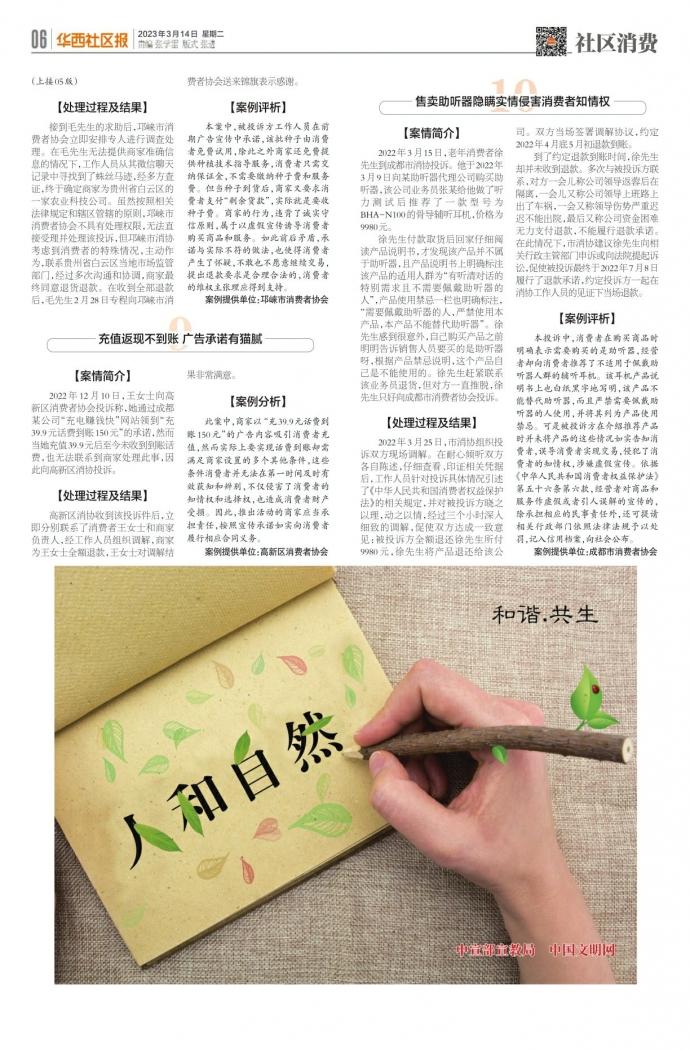 06
华西社区报
2023年3月14日 星期二
责编 张学雷 版式 张进
社区消费
(上接05版)
【处理过程及结果】
接到毛先生的求助后,邛崃市消
费者协会立即安排专人进行调查处
理。在毛先生无法提供商家准确信
息的情况下,工作人员从其微信聊天
记录中寻找到了蛛丝马迹,经多方查
证,终于确定商家为贵州省白云区的
一家农业科技公司。虽然按照相关
法律规定和辖区管辖的原则,邛崃市
消费者协会不具有处理权限,无法直
接受理并处理该投诉,但邛崃市消协
考虑到消费者的特殊情况,主动作
为,联系贵州省白云区当地市场监管
部门,经过多次沟通和协调,商家最
终同意退货退款。在收到全部退款
后,毛先生2月28日专程向邛崃市消
费者协会送来锦旗表示感谢。
【案例评析】
本案中,被投诉方工作人员在前
期广告宣传中承诺,该批种子由消费
者免费试用,除此之外商家还免费提
供种植技术指导服务,消费者只需交
纳保证金,不需要缴纳种子费和服务
费。但当种子到货后,商家又要求消
费者支付“剩余货款”,实际就是要收
种子费。商家的行为,违背了诚实守
信原则,属于以虚假宣传诱导消费者
购买商品和服务。如此前后矛盾,承
诺与实际不符的做法,也使得消费者
产生了怀疑,不敢也不愿意继续交易,
提出退款要求是合理合法的,消费者
的维权主张理应得到支持。
案例提供单位:邛崃市消费者协会
9
充值返现不到账 广告承诺有猫腻
【案情简介】
2022年12月10日,王女士向高
新区消费者协会投诉称,她通过成都
某公司“充电赚钱快”网站领到“充
39.9元话费到账150元”的承诺,然而
当她充值39.9元后至今未收到到账话
费,也无法联系到商家处理此事,因
此向高新区消协投诉。
【处理过程及结果】
高新区消协收到该投诉件后,立
即分别联系了消费者王女士和商家
负责人,经工作人员组织调解,商家
为王女士全额退款,王女士对调解结
果非常满意。
【案例分析】
此案中,商家以“充39.9元话费到
账150元”的广告内容吸引消费者充
值,然而实际上要实现话费到账却需
满足商家设置的多个其他条件,这些
条件消费者并无法在第一时间及时有
效获知和辨别,不仅侵害了消费者的
知情权和选择权,也造成消费者财产
受损。因此,推出活动的商家应当承
担责任,按照宣传承诺如实向消费者
履行相应合同义务。
案例提供单位:高新区消费者协会
10
售卖助听器隐瞒实情侵害消费者知情权
【案情简介】
2022年3月15日,老年消费者徐
先生到成都市消协投诉。他于2022年
3月9日向某助听器代理公司购买助
听器,该公司业务员张某给他做了听
力测试后推荐了一款型号为
BHA-N100的骨导辅听耳机,价格为
9980元。
徐先生付款取货后回家仔细阅
读产品说明书,才发现该产品并不属
于助听器,且产品说明书上明确标注
该产品的适用人群为“有听清对话的
特别需求且不需要佩戴助听器的
人”,产品使用禁忌一栏也明确标注,
“需要佩戴助听器的人,严禁使用本
产品,本产品不能替代助听器”。徐
先生感到很意外,自己购买产品之前
明明告诉销售人员要买的是助听器
呀,根据产品禁忌说明,这个产品自
己是不能使用的。徐先生赶紧联系
该业务员退货,但对方一直推脱,徐
先生只好向成都市消费者协会投诉。
【处理过程及结果】
2022年3月25日,市消协组织投
诉双方现场调解。在耐心倾听双方
各自陈述,仔细查看、印证相关凭据
后,工作人员针对投诉具体情况引述
了《中华人民共和国消费者权益保护
法》的相关规定,并对被投诉方晓之
以理,动之以情,经过三个小时深入
细致的调解,促使双方达成一致意
见:被投诉方全额退还徐先生所付
9980元,徐先生将产品退还给该公
司。双方当场签署调解协议,约定
2022年4月底5月初退款到账。
到了约定退款到账时间,徐先生
却并未收到退款。多次与被投诉方联
系,对方一会儿称公司领导返蓉后在
隔离,一会儿又称公司领导上班路上
出了车祸,一会又称领导伤势严重迟
迟不能出院,最后又称公司资金困难
无力支付退款,不能履行退款承诺。
在此情况下,市消协建议徐先生向相
关行政主管部门申诉或向法院提起诉
讼,促使被投诉最终于2022年7月8日
履行了退款承诺,约定投诉方一起在
消协工作人员的见证下当场退款。
【案例评析】
本投诉中,消费者在购买商品时
明确表示需要购买的是助听器,经营
者却向消费者推荐了不适用于佩戴助
听器人群的辅听耳机。该耳机产品说
明书上也白纸黑字地写明,该产品不
能替代助听器,而且严禁需要佩戴助
听器的人使用,并将其列为产品使用
禁忌。可是被投诉方在介绍推荐产品
时并未将产品的这些情况如实告知消
费者,误导消费者实现交易,侵犯了消
费者的知情权,涉嫌虚假宣传。依据
《中华人民共和国消费者权益保护法》
第五十六条第六款,经营者对商品和
服务作虚假或者引人误解的宣传的,
除承担相应的民事责任外,还可提请
相关行政部门依照法律法规予以处
罚,记入信用档案,向社会公布。
案例提供单位:成都市消费者协会
和谐.共生
人和自然
中宣部宣教局 中国文明网